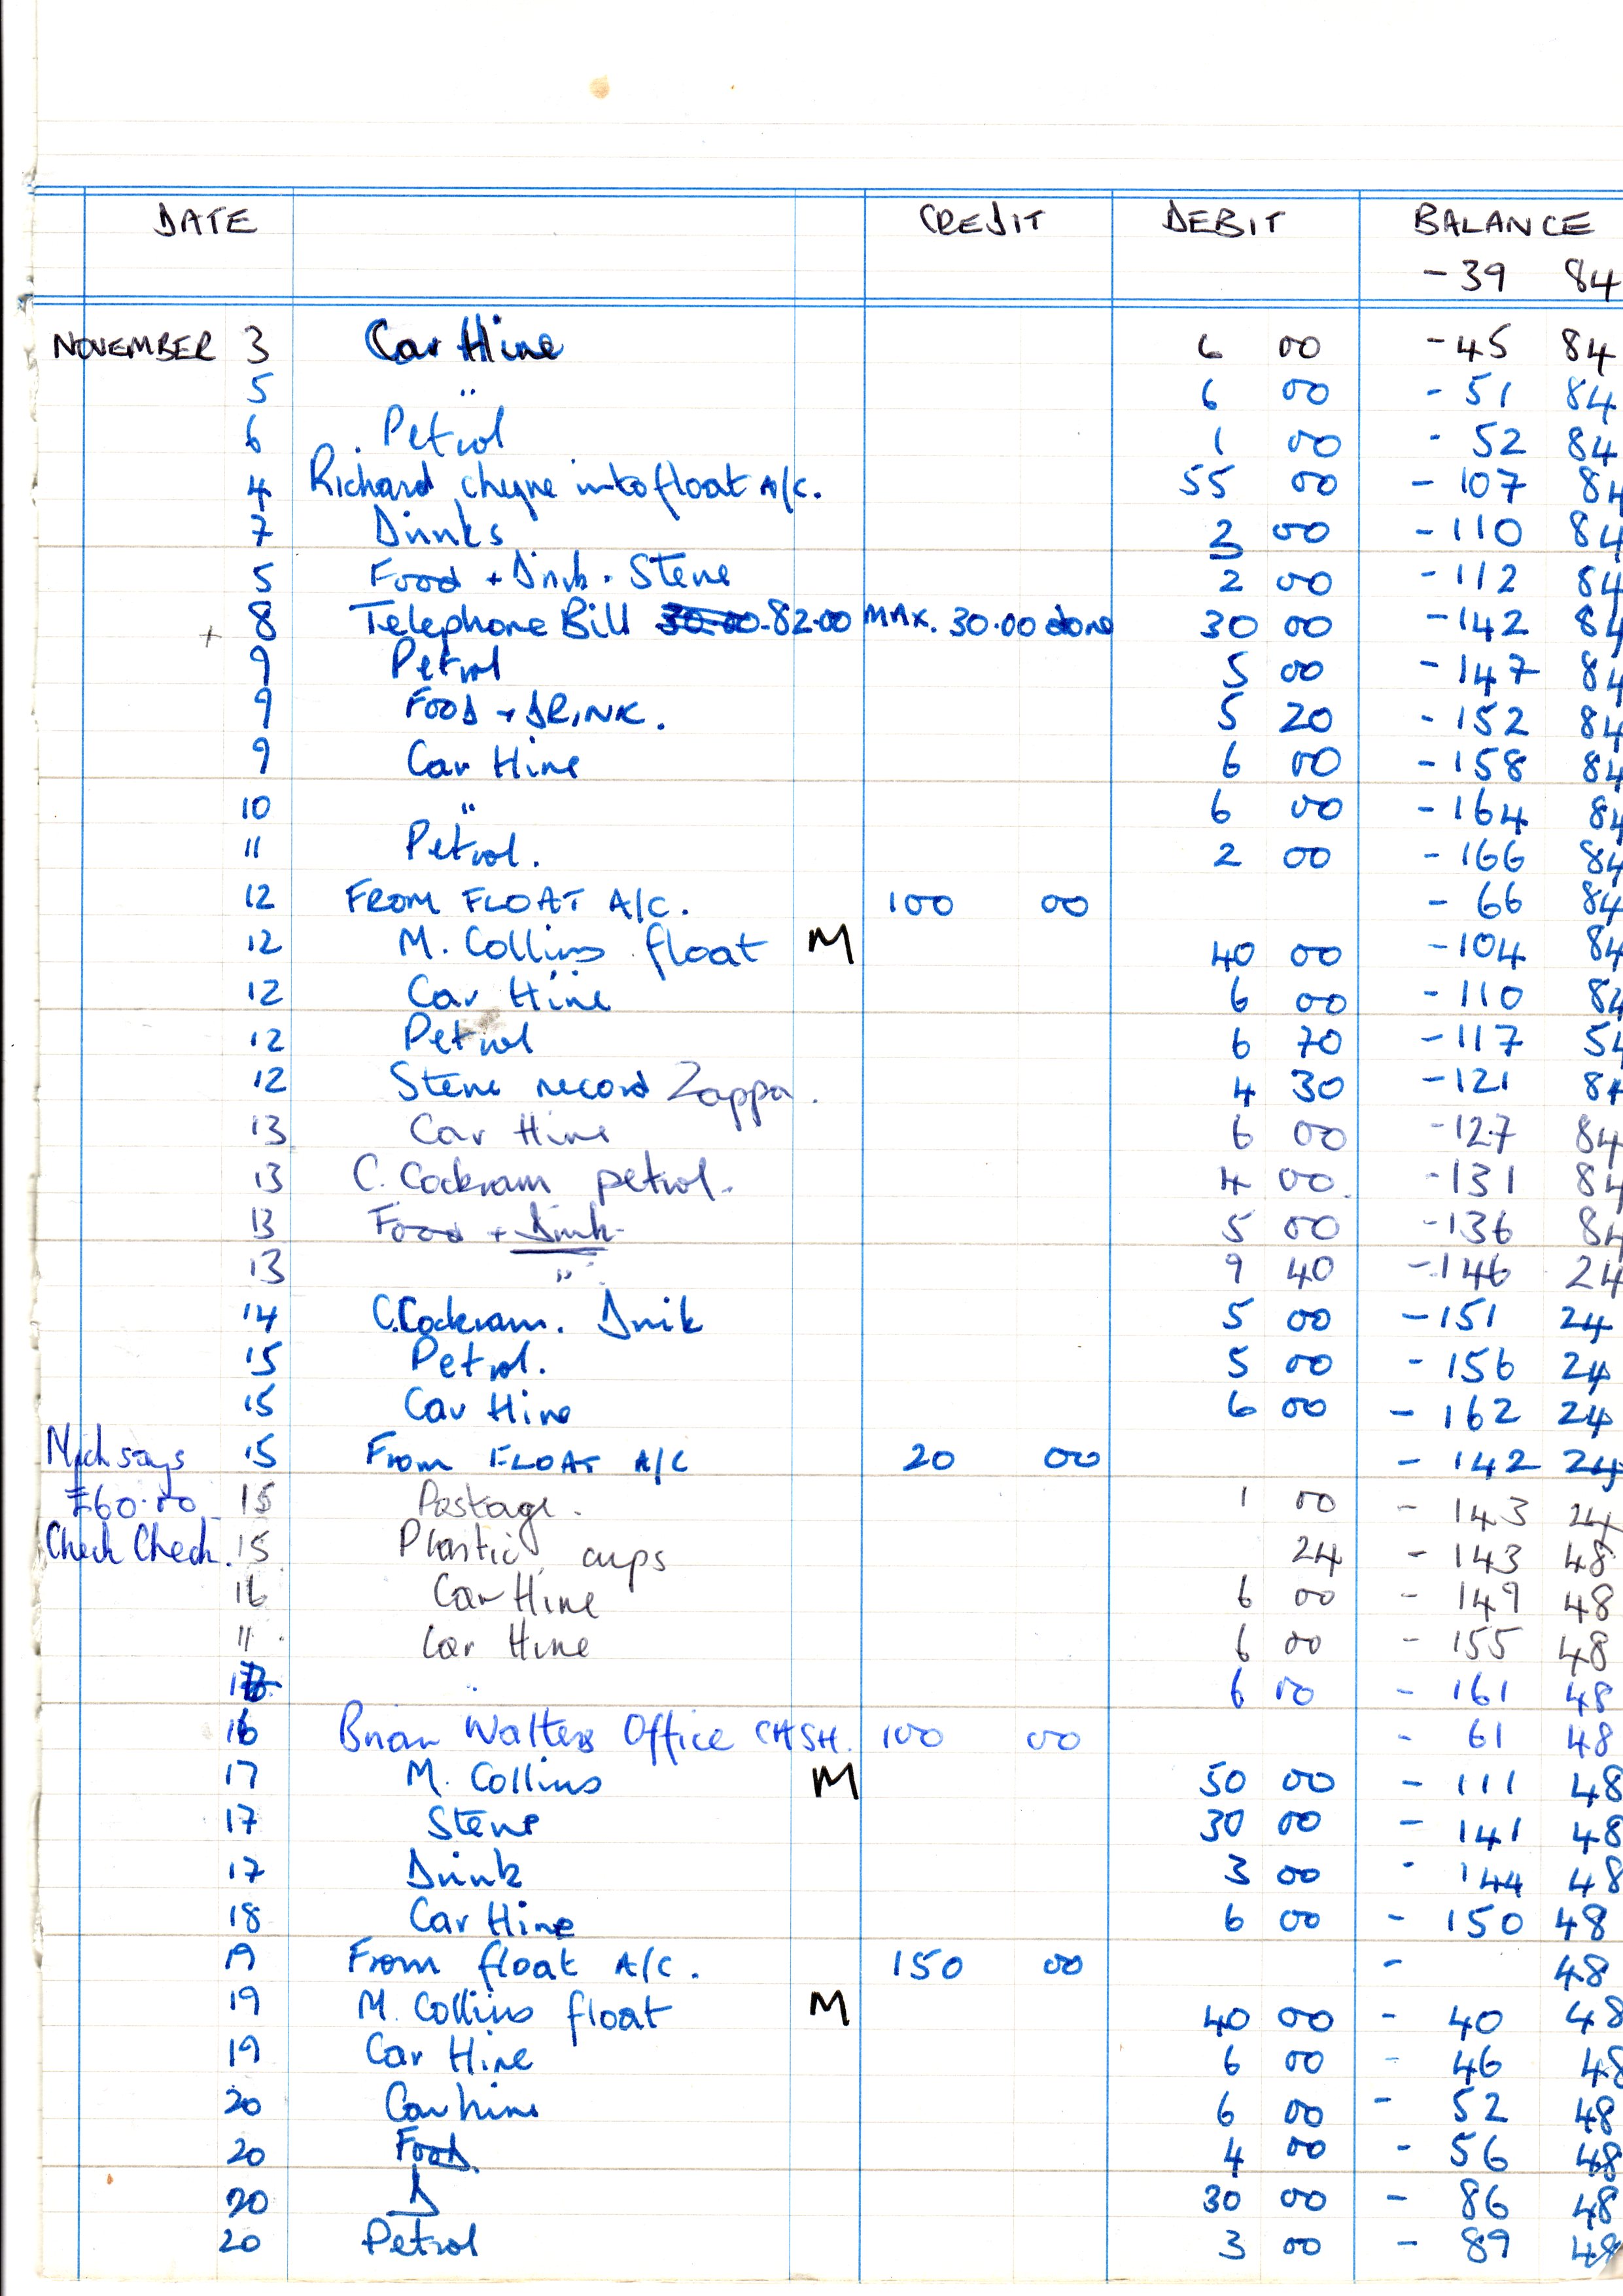 DATE CREDIT DEBIT BALANCE
-39 84
NOVEMBER 3 Car Hire 6 00 -45 84
5 " 6 00 - 51 84
6 Petrol 1 00 - 52 84
4 Richard cheque into float A/c. 55 00 - 107 84
7 Drinks 00 -110 84
5 Food + Drink. Steve 2 00 -112 84
+ 8 Telephone Bill 30.00 82.00 MAX. 30.00 done 30 00 -142 84
9 Petrol 5 00 -147 84
9 FOOD + DRINK. 5 20 -152 84
9 Car Hire 6 00 -158 84
10 " 6 00 -164 84
11 Petrol. 2 00 -166 84
12 FROM FLOAT A/C. 100 00 - 66 84
12 M. Collins float M 40 00 -104 84
12 Car Hire 6 00 -110 84
12 Petrol 6 70 -117 54
12 Steve record Zappa. 4 30 -121 84
13 Car Hire 6 00 -127 84
13 C. Cockram petrol. 4 00. -131 84
13 Food + Drink 5 00 -136 84
13 " 9 40 -146 24
14 C.Cockram. Drink 5 00 -151 24
15 Petrol. 5 00 - 156 24
15 Car Hire 6 00 - 162 24
Mick says 15 From FLOAT A/C 20 00 - 142 24
£60.00 15 Postage. 1 00 - 143 24
Check Check. 15 Plastic cups 24 - 143 48
16 Car Hire 6 00 - 149 48
11 Car Hire 6 00 - 155 48
6 00 - 161 48
16 Brian Walters Office CASH. 100 00 - 61 48
17 M. Collins M 50 00 - 111 48
17 Steve 30 00 - 141 48
17 Drink 3 00 - 144 48
18 Car Hire 6 00 - 150 48
19 From float A/C. 150 00 - 48
19 M. Collins float M 40 00 - 40 48
19 Car Hire 6 00 - 46 48
20 Car hire 6 00 - 52 48
20 Food 4 00 - 56 48
20 D 30 00 - 86 48
20 Petrol 3 00 - 89 48